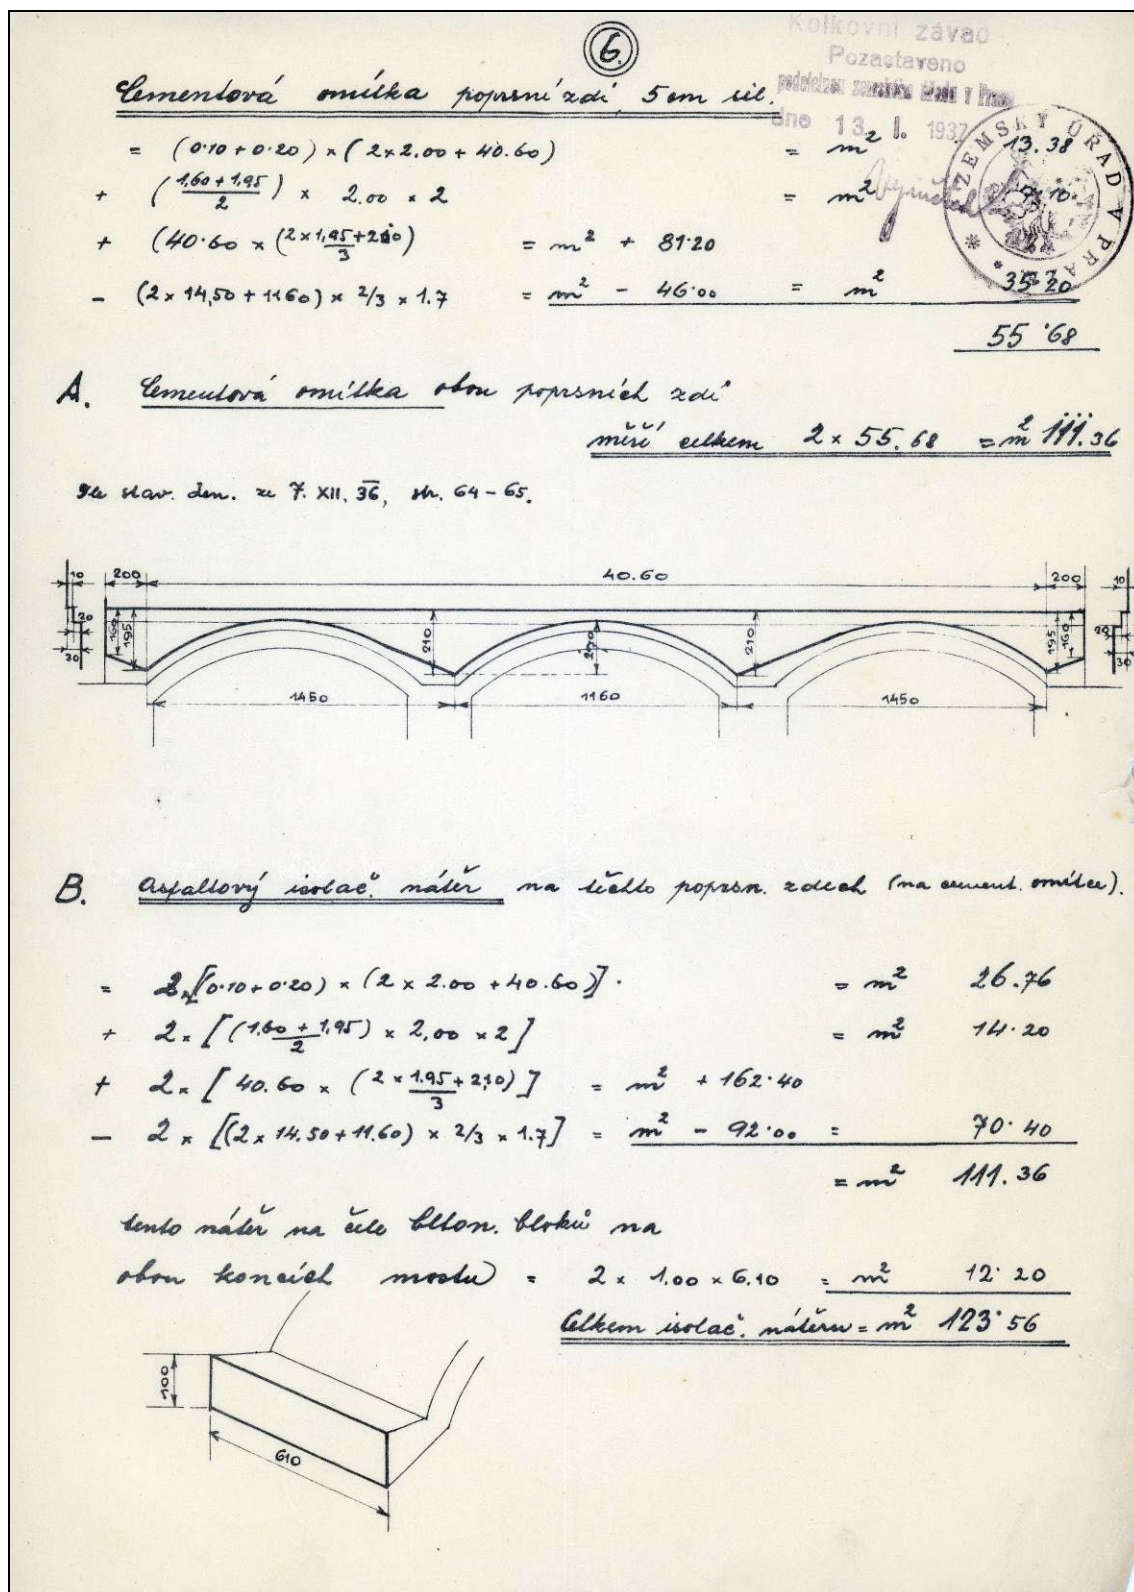 6.
Kolkovní závad
Pozastaveno
dne 13. I. 1937
ZEMSKÝ ÚŘAD V PRAZE
Cementová omítka poprsní zdi, 5 cm sil.
= (0·10 + 0·20) × (2 × 2.00 + 40.60) = m² 13.38
+ (1,60 + 1,95 / 2) × 2.00 × 2 = m² 7.10
+ (40·60 × (2 × 1,95 + 2·10 / 3) = m² + 81·20
- (2 × 14,50 + 11 60) × 2/3 × 1.7 = m² - 46·00 = m² 35·20
55·68
A. Cementová omítka obou poprsních zdí
měří celkem 2 × 55.68 = m² 111.36
Dle stav. den. ze 7. XII. 36, str. 64 - 65.
10 200 40.60 200 10
20 160 195 210 210 195 160 20
30 30
1450 1160 1450
B. Asfaltový isolač. nátěr na těchto poprsn. zdech (na cement. omítce).
= 2 × [(0·10 + 0·20) × (2 × 2.00 + 40.60)]. = m² 26.76
+ 2 × [(1,60 + 1,95 / 2) × 2,00 × 2] = m² 14·20
+ 2 × [40.60 × (2 × 1.95 + 2,10 / 3)] = m² + 162·40
- 2 × [(2 × 14.50 + 11.60) × 2/3 × 1.7] = m² - 92·00 = 70·40
= m² 111.36
tento nátěr na čele beton. bloků na
obou koncích mostu = 2 × 1.00 × 6.10 = m² 12·20
Celkem isolač. nátěru = m² 123·56
100
610